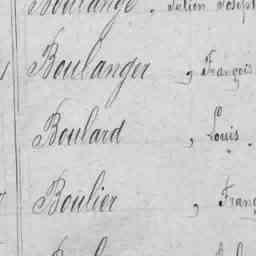 Boulange, Julien Joseph
Boulanger, François
Boulard, Louis
Boulier, Franç